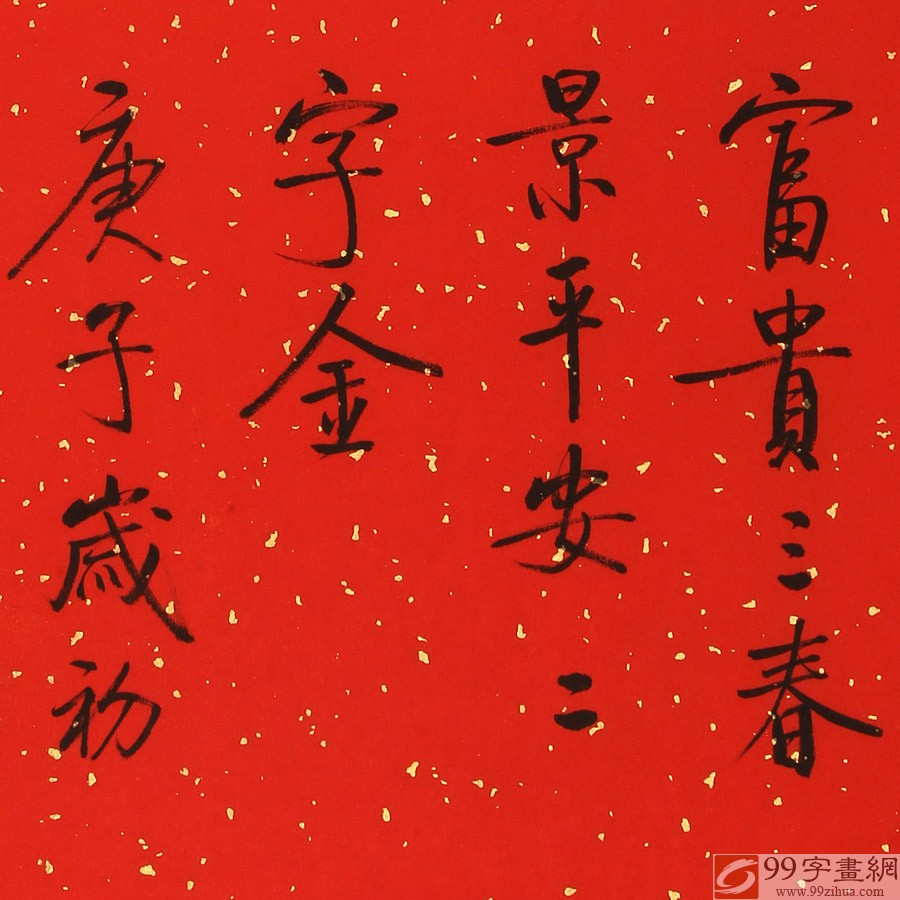 富貴三春
景平安二
字金
庚子歲初
99字畫網
www.99zihua.com